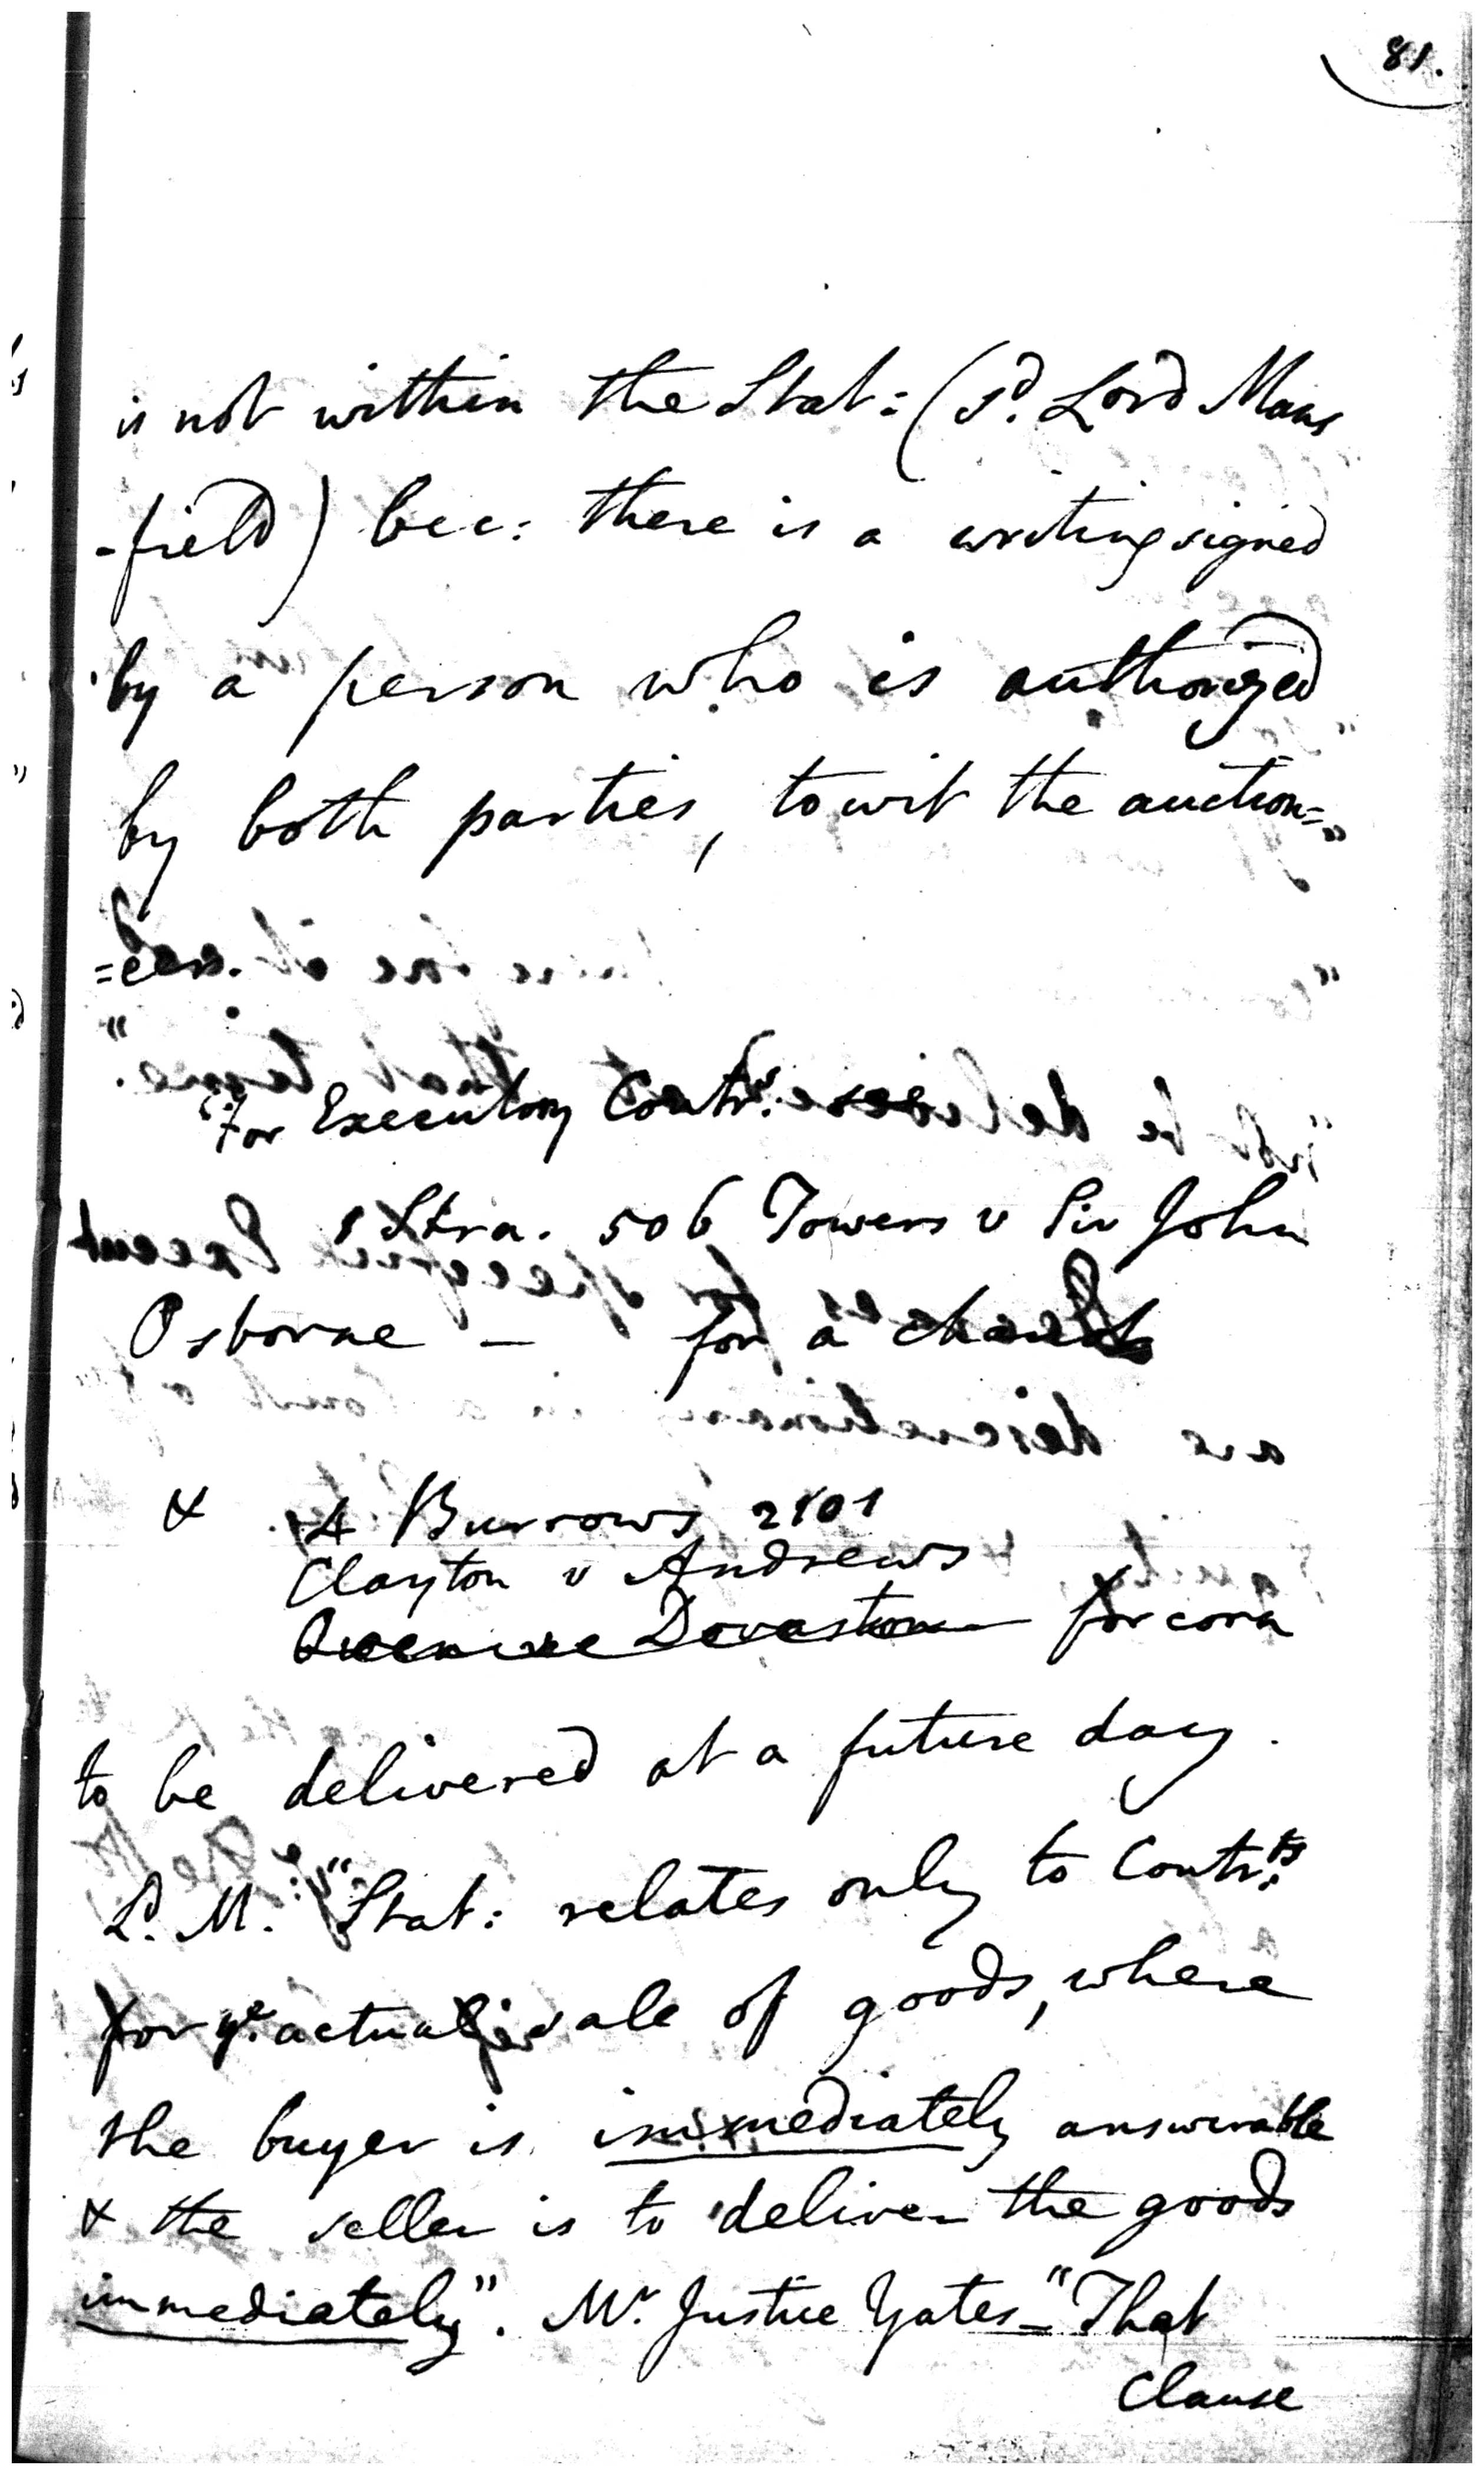 81.
is not within the Stat: (sd. Lord Mans
-field) bec: there is a writing signed
by a person who is authorized
by both parties, to wit the auction=
=eer.
For Executory Contrs: see
1 Stra. 506 Towers v Sir John
Osborne — for a chariot
& 4 Burrows 2101
Clayton v Andrews
for corn
to be delivered at a future day.
Ld. M. "Stat: relates only to Contr:ts
for ye. actual sale of goods, where
the buyer is immediately answerable
& the seller is to deliver the goods
immediately". Mr. Justice Yates = "That
Clause